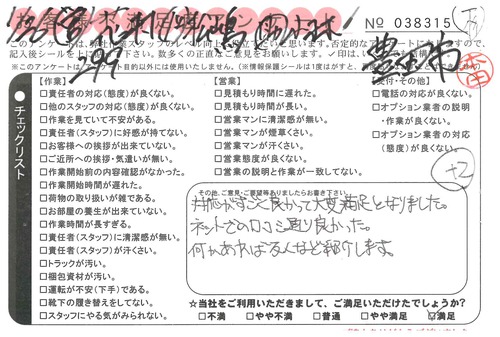 No 038315
チェックリスト
【作業】
□責任者の対応(態度)が良くない。
□他のスタッフの対応(態度)が良くない。
□作業を見ていて不安がある。
□責任者(スタッフ)に好感が持てない。
□お客様への挨拶が出来ていない。
□ご近所への挨拶・気遣いが無い。
□作業開始前の内容確認がなかった。
□作業開始時間が遅れた。
□荷物の取り扱いが雑である。
□お部屋の養生が出来ていない。
□作業時間が長すぎる。
□責任者(スタッフ)に清潔感が無い。
□責任者(スタッフ)が汗くさい。
□トラックが汚い。
□梱包資材が汚い。
□運転が不安(下手)である。
□靴下の履き替えをしてない。
□スタッフにやる気がみられない。
【営業】
□見積もり時間に遅れた。
□見積もり時間が長い。
□営業マンに清潔感が無い。
□営業マンが煙草くさい。
□営業マンが汗くさい。
□営業態度が良くない。
□営業の説明と作業が一致してない。
□電話の対応が良くない。
□オプション業者の説明
・作業が良くない。
□オプション業者の対応
(態度)が良くない。
+2
その他、ご意見・ご要望等ありましたらお書き下さい。
対応がすごく良かって大変満足となりました。
ネットでの口コミ通り良かった。
何かあれば友人など紹介します。
☆当社をご利用いただきまして、ご満足いただけたでしょうか?
□不満 □やや不満 □普通 □やや満足 □満足